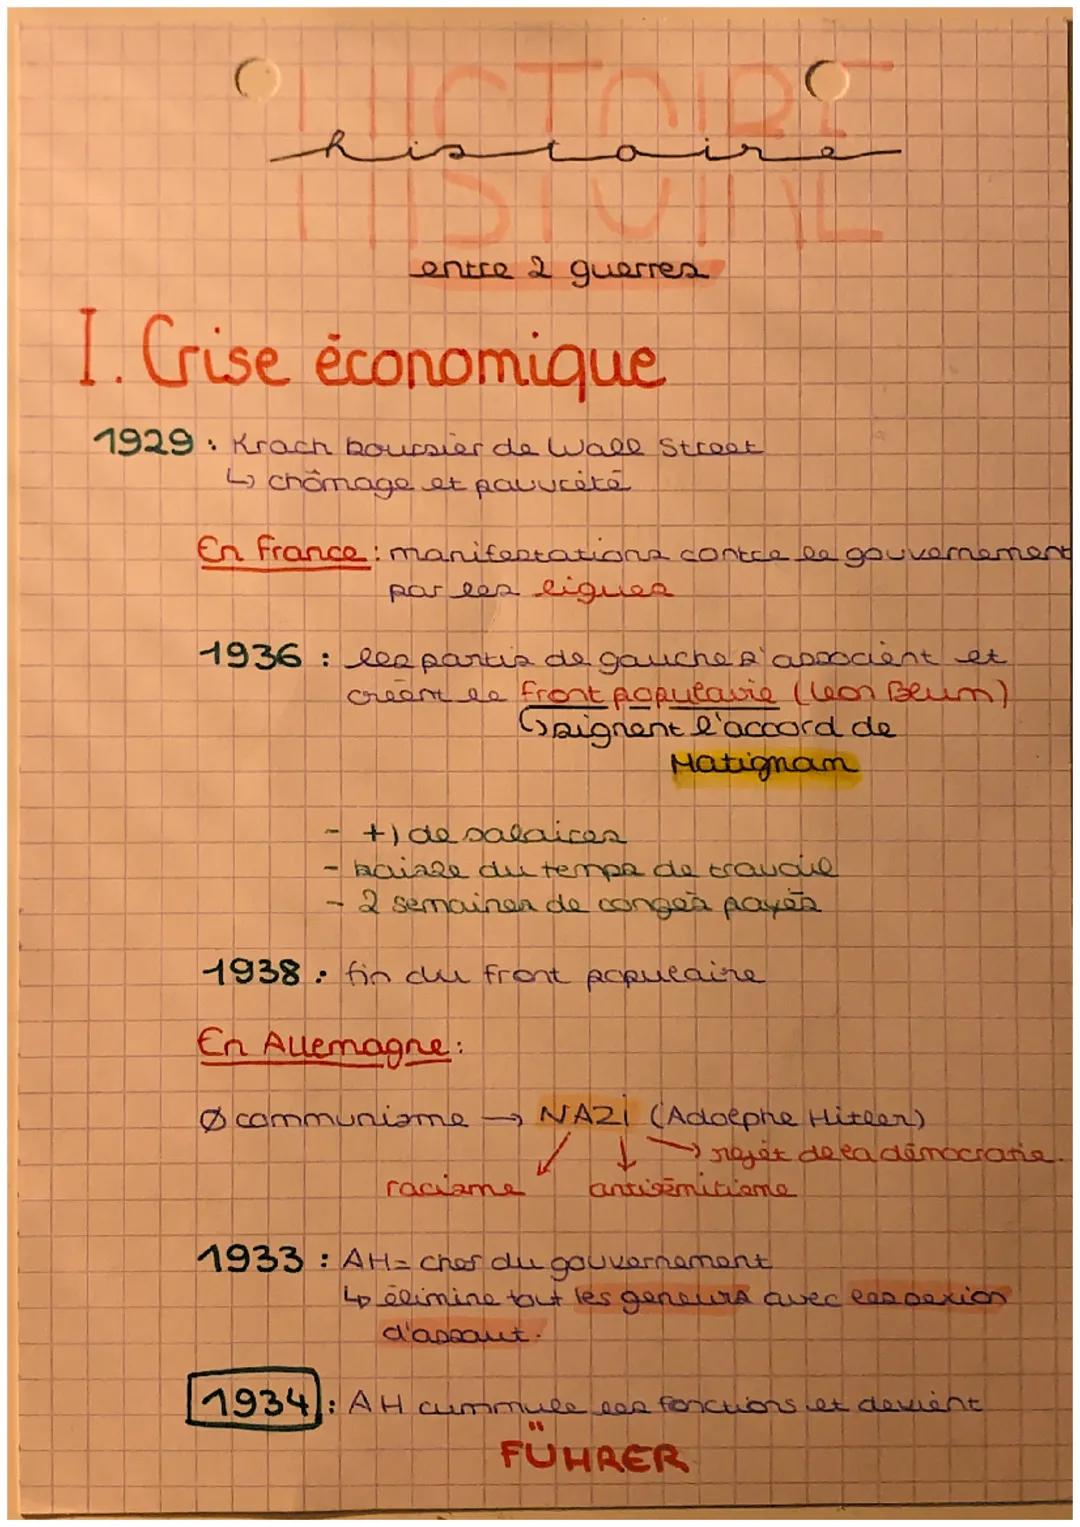 HISTOIRE
histoire
entre 2 guerres
I. Crise économique
1929 : Krach boursier de Wall Street
↳ chômage et pauvreté
En France : manifestations contre le gouvernement
par les ligues
1936 : les partis de gauche s'associent et
créent le front populavie (Leon Blum)
↳ signent l'accord de
Matignam
- +) de salaires
- baisse du temps de travail
- 2 semaines de congés payés
1938 : fin du front populaire
En Allemagne :
Ø communisme → NAZi (Adolphe Hitler)
→ rejet de la démocratie.
racisme antisémitisme
1933 : AH = chef du gouvernement
↳ élimine tout les geneurs avec les sexion
d'assaut.
1934 : AH cummule les fonctions et devient
FÜHRER